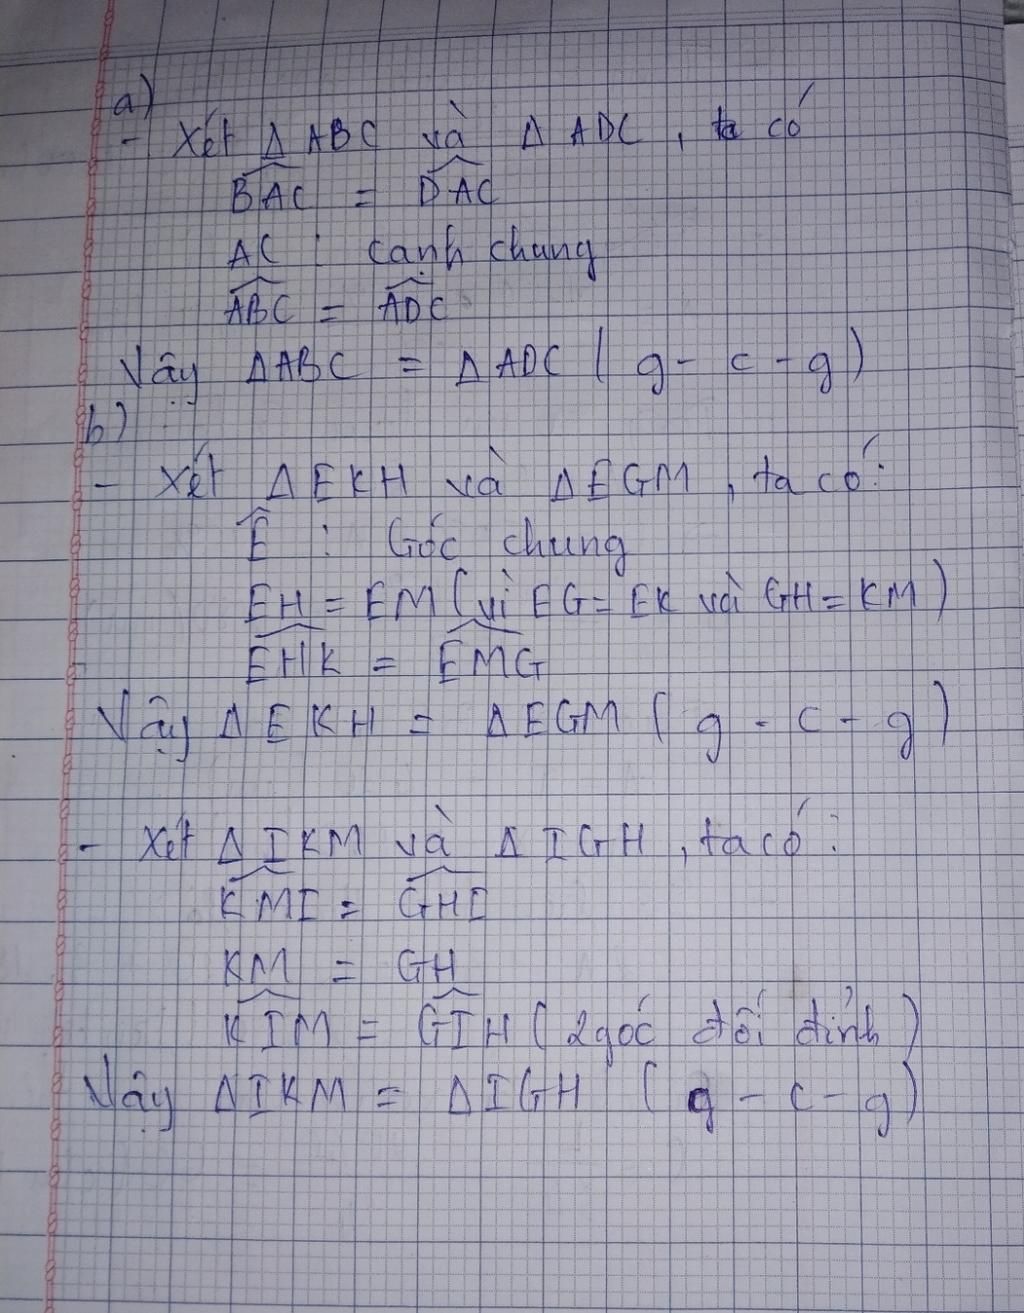 a)
- Xét Δ ABC và Δ ADC, ta có
BAC = DAC
AC : cạnh chung
ABC = ADC
Vậy ΔABC = ΔADC (g - c - g)
b)
- Xét ΔEKH và ΔEGM, ta có:
Ê : Góc chung
EH = EM (vì EG = EK và GH = KM)
EHK = EMG
Vậy ΔEKH = ΔEGM (g - c - g)
- Xét ΔIKM và ΔIGH, ta có:
KMI = GHI
KM = GH
KIM = GIH (2 góc đối đỉnh)
Vậy ΔIKM = ΔIGH (g - c - g)